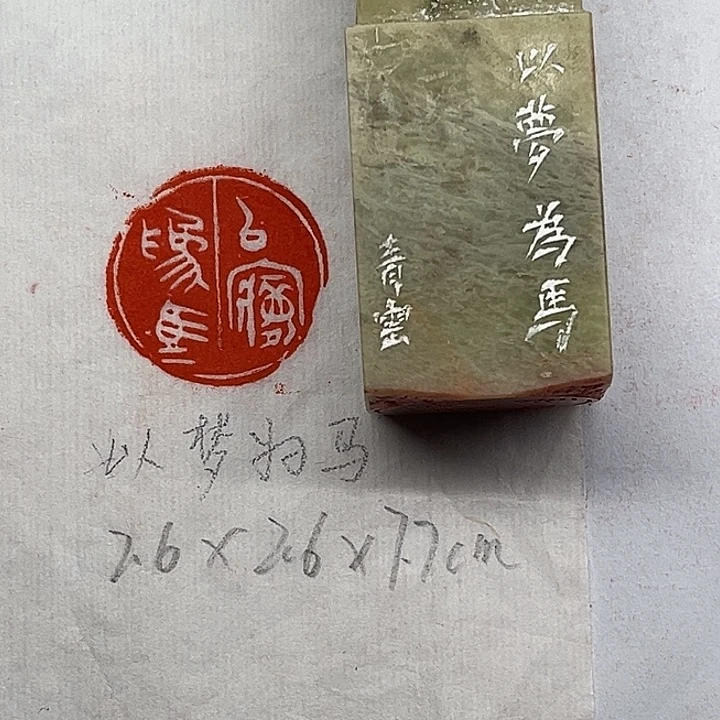 以夢為馬
以夢為馬
青雲
以梦为马
2.6×2.6×7.7cm